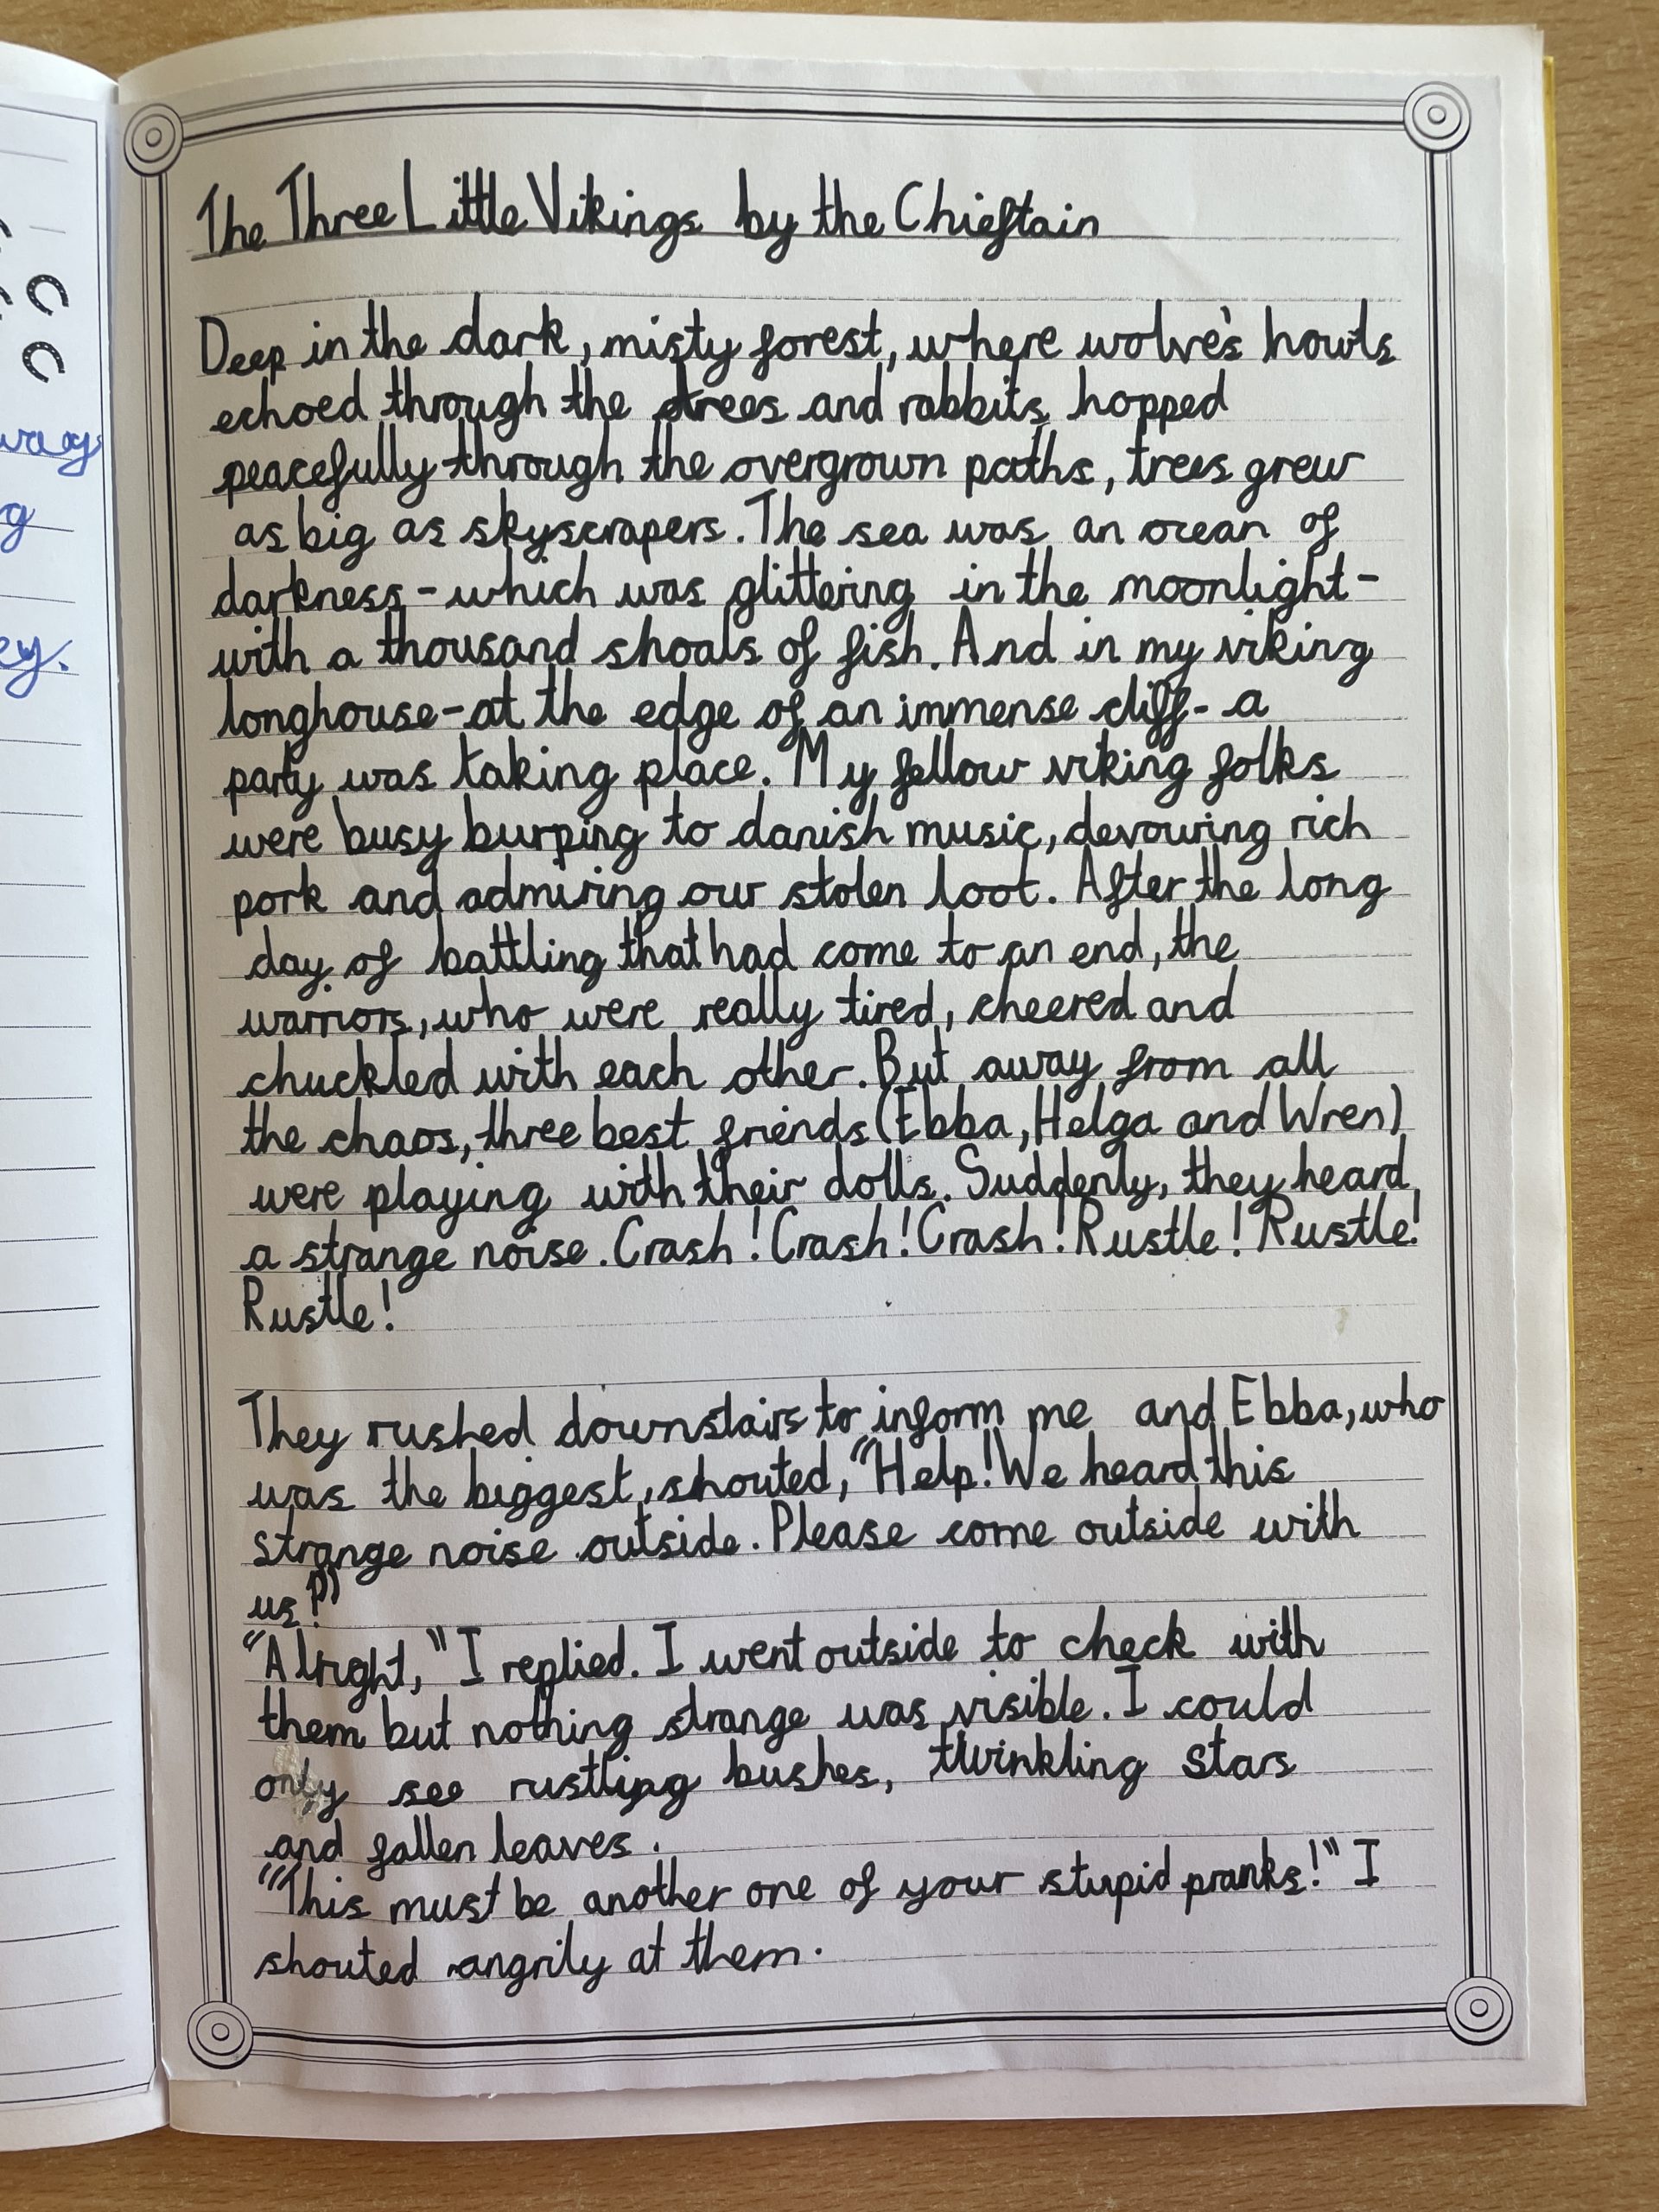 The Three Little Vikings by the Chieftain
Deep in the dark, misty forest, where wolve's howls
echoed through the trees and rabbits hopped
peacefully through the overgrown paths, trees grew
as big as skyscrapers. The sea was an ocean of
darkness - which was glittering in the moonlight -
with a thousand shoals of fish. And in my viking
longhouse - at the edge of an immense cliff - a
party was taking place. My fellow viking folks
were busy burping to danish music, devouring rich
pork and admiring our stolen loot. After the long
day of battling that had come to an end, the
warriors, who were really tired, cheered and
chuckled with each other. But away from all
the chaos, three best friends (Ebba, Helga and Wren)
were playing with their dolls. Suddenly, they heard
a strange noise. Crash! Crash! Crash! Rustle! Rustle!
Rustle!
They rushed downstairs to inform me and Ebba, who
was the biggest, shouted, "Help! We heard this
strange noise outside. Please come outside with
us?"
"Alright," I replied. I went outside to check with
them but nothing strange was visible. I could
only see rustling bushes, twinkling stars
and fallen leaves.
"This must be another one of your stupid pranks!" I
shouted angrily at them.